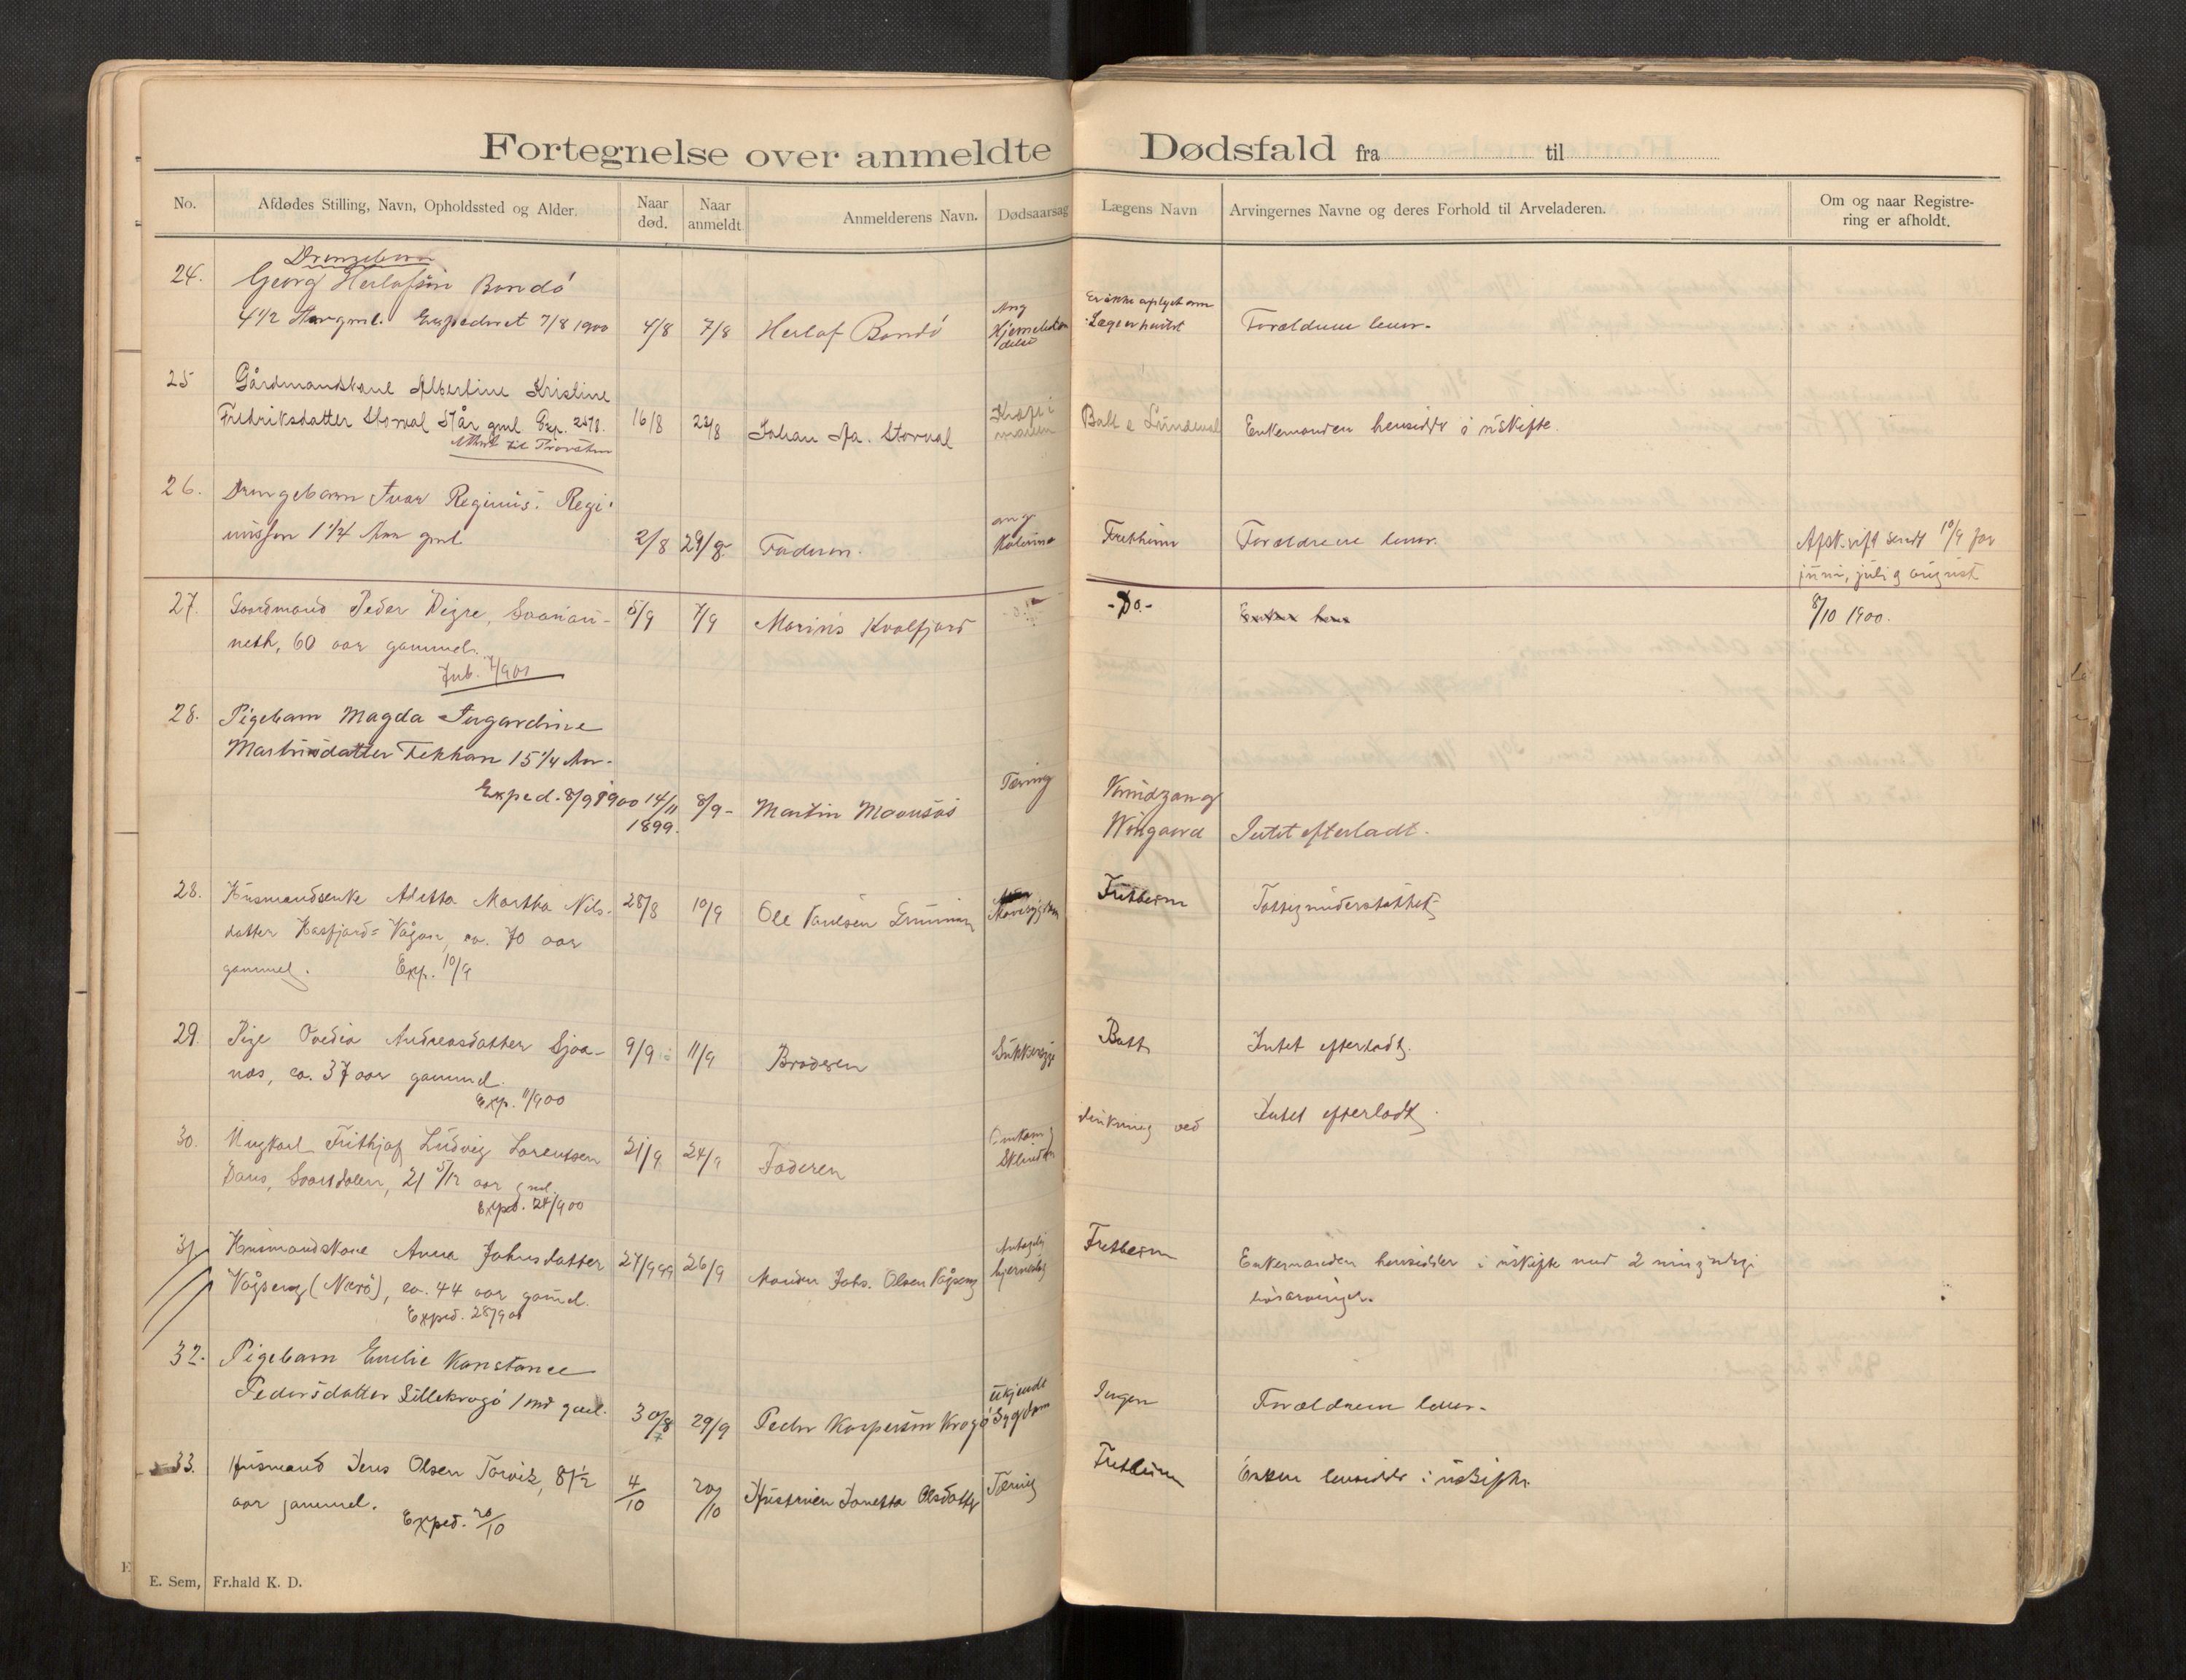 Fortegnelse over anmeldte Dødsfald fra til
No. Afdødes Stilling, Navn, Opholdssted og Alder. Naar død. Naar anmeldt Anmelderens Navn. Dødsaarsag Lægens Navn Arvingernes Navne og deres Forhold til Arveladeren. Om og naar Registrering er afholdt.
Drengebarn
24. Georg Herlofsen Bondø
4 1/2 Aar gml. Expederet 7/8 1900 4/8 7/8 Herlof Bondø Ang Er ikke oplyst om Læge er Forældrene lever.
25 Gårdmandskone Albertine Kristine
Fredriksdatter Storval 51 år gml Exp. 25/8. 16/8 22/8 Johan Aa. Storval Kræft i maven Enkemanden hensidder i uskifte.
Attest til Provsten
26. Drengebarn Ivar Reginius Regi-
niussen 1 1/4 Aar gml 2/8 29/8 Faderen. ang Kolerine Fretheim Forældrene lever. Afskrift sendt 10/9 for
juni, juli og august
27. Gaardmand Peder Digre, 5/9 7/9 Marius Kvalfjord -Do.- 8/10 1900.
60 aar gammel.
28. Pigebarn Magda Ingardine
Martinsdatter 15 1/4 Aar. Tæring
Exped. 8/9 1900 14/11 1899. 8/9- Martin Wingaard Intet efterladt.
28. Husmandsenke Aletta Martha Nils-
datter Kasfjord-Vågan, ca. 70 aar 28/8 10/9 Ole Paulsen Mavesygdom Fretheim Fattigunderstøttet
gammel. Exp. 10/9
29. Pige Ovedia Andreasdatter Sjaa-
næs, ca. 37 aar gammel. 9/9 11/9 Broderen Sukkersyge Batt Intet efterladt.
Exp. 11/9 00
30. Ungkarl Frithjof Ludvig Lorentsen 21/9 24/9 Faderen Omkom ved Intet efterladt.
21 5/12 aar gml.
Exped. 24/9 00
31 Husmandskone Anna Johnsdatter 27/9 99 26/9 Manden Johs. Olsen Vågseng Antagelig hjerneslag Fretheim Enkemanden hensidder i uskifte med 2 myndige
Vågseng (Nærø), ca. 44 aar gammel. livsarvinger.
Exped. 28/9 00
32. Pigebarn Emilie Konstance
Pedersdatter Lillekrogø 1 md gml. 30/8 29/9 Peder Kaspersen Krogø ukjendt Sygdom Ingen Forældrene lever.
33. Husmand Jens Olsen Torvik, 81 1/2
aar gammel. 4/10 20/10 Hustruen Janetta Olsdatter Tæring Fretheim Enken hensidder i uskifte.
Exped. 20/10
E. Sem, Fr.hald K. D.